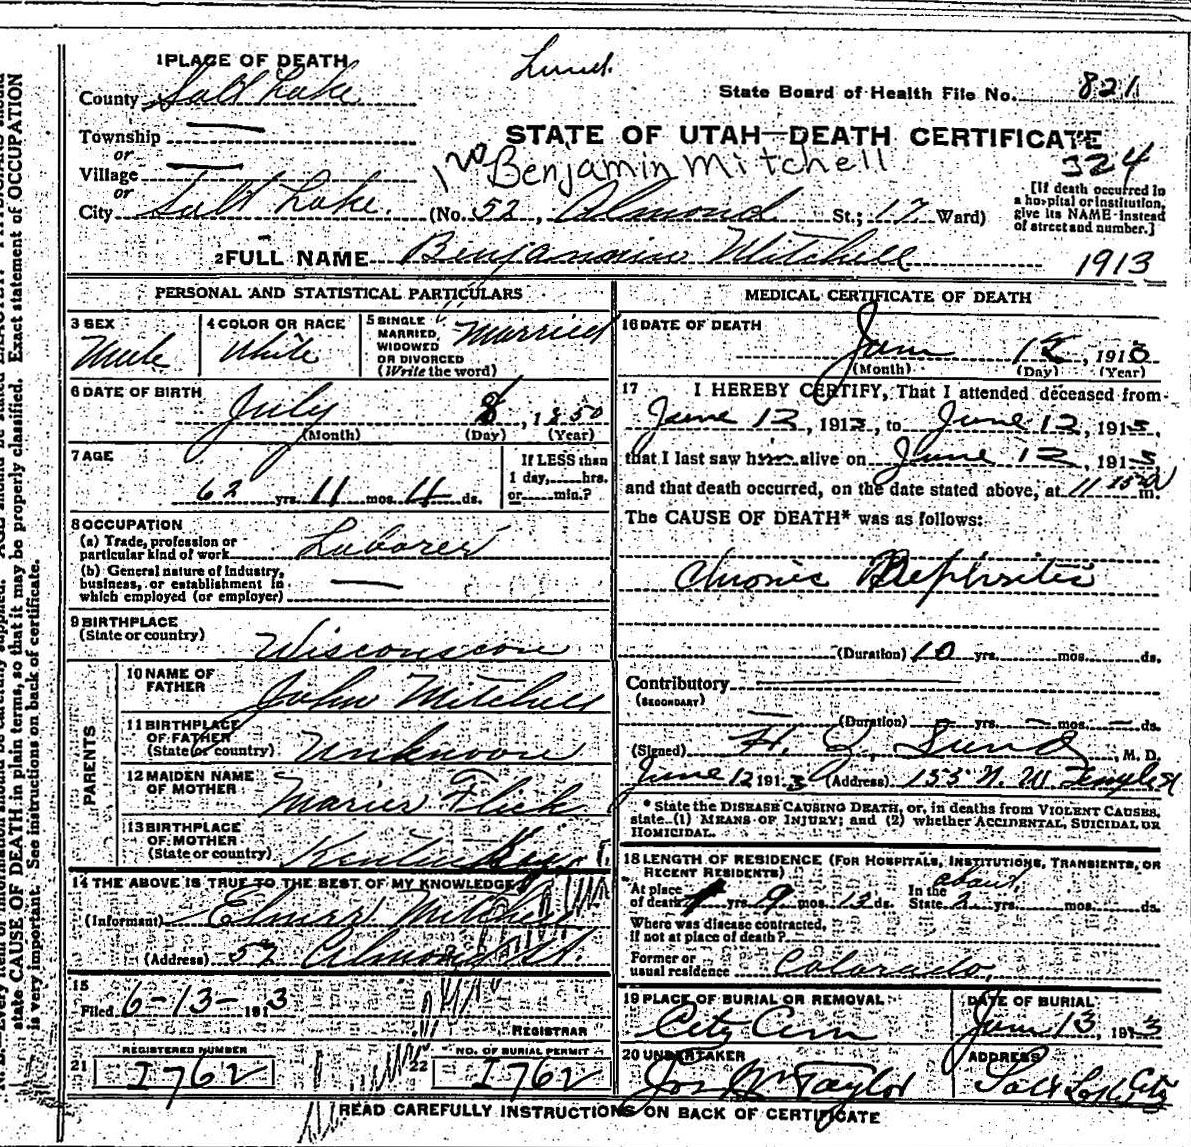 1 PLACE OF DEATH
County Salt Lake
State Board of Health File No. 821
Township —
or
STATE OF UTAH—DEATH CERTIFICATE
Village —
or
Benjamin Mitchell
324
City Salt Lake. (No. 52, Almond St.; 17 Ward)
[If death occurred in a hospital or institution, give its NAME instead of street and number.]
2 FULL NAME Benjamin Mitchell
1913
PERSONAL AND STATISTICAL PARTICULARS
3 SEX Male
4 COLOR OR RACE White
5 SINGLE MARRIED, WIDOWED OR DIVORCED (Write the word) Married
6 DATE OF BIRTH
July 8, 1850
(Month) (Day) (Year)
7 AGE
62 yrs. 11 mos. 4 ds.
If LESS than 1 day, hrs. or min.?
8 OCCUPATION
(a) Trade, profession or particular kind of work Laborer
(b) General nature of industry, business, or establishment in which employed (or employer) —
9 BIRTHPLACE
(State or country) Wisconson
PARENTS
10 NAME OF FATHER John Mitchell
11 BIRTHPLACE OF FATHER (State or country) Unknown
12 MAIDEN NAME OF MOTHER Flick
13 BIRTHPLACE OF MOTHER (State or country) Kentuckey
14 THE ABOVE IS TRUE TO THE BEST OF MY KNOWLEDGE
(Informant) Elmer Mitchell
(Address) 52 Almond St.
15
Filed 6-13-1913
REGISTRAR
REGISTERED NUMBER
21 I762
NO. OF BURIAL PERMIT
22 I762
MEDICAL CERTIFICATE OF DEATH
16 DATE OF DEATH
12, 1913
(Month) (Day) (Year)
17 I HEREBY CERTIFY, That I attended deceased from
June 12, 1913, to June 12, 1913,
that I last saw him alive on June 12, 1913
and that death occurred, on the date stated above, at 11 m.
The CAUSE OF DEATH* was as follows:
Chronic Nephritis
(Duration) 10 yrs. mos. ds.
Contributory —
(SECONDARY)
(Duration) — yrs. — mos. — ds.
(Signed) Lund, M. D.
June 12 1913 (Address) 155 N. W. Temple St
* State the DISEASE CAUSING DEATH, or, in deaths from VIOLENT CAUSES, state (1) MEANS OF INJURY; and (2) whether ACCIDENTAL, SUICIDAL OR HOMICIDAL.
18 LENGTH OF RESIDENCE (FOR HOSPITALS, INSTITUTIONS, TRANSIENTS, OR RECENT RESIDENTS)
At place of death yrs. 9 mos. 13 ds. In the State about 2 yrs. mos. ds.
Where was disease contracted, if not at place of death? —
Former or usual residence Colorado.
19 PLACE OF BURIAL OR REMOVAL City Cem
DATE OF BURIAL June 13, 1913
20 UNDERTAKER Jos Wm Taylor
ADDRESS Salt Lake City
READ CAREFULLY INSTRUCTIONS ON BACK OF CERTIFICATE
state CAUSE OF DEATH in plain terms, so that it may be properly classified. Exact statement of OCCUPATION
is very important. See instructions on back of certificate.